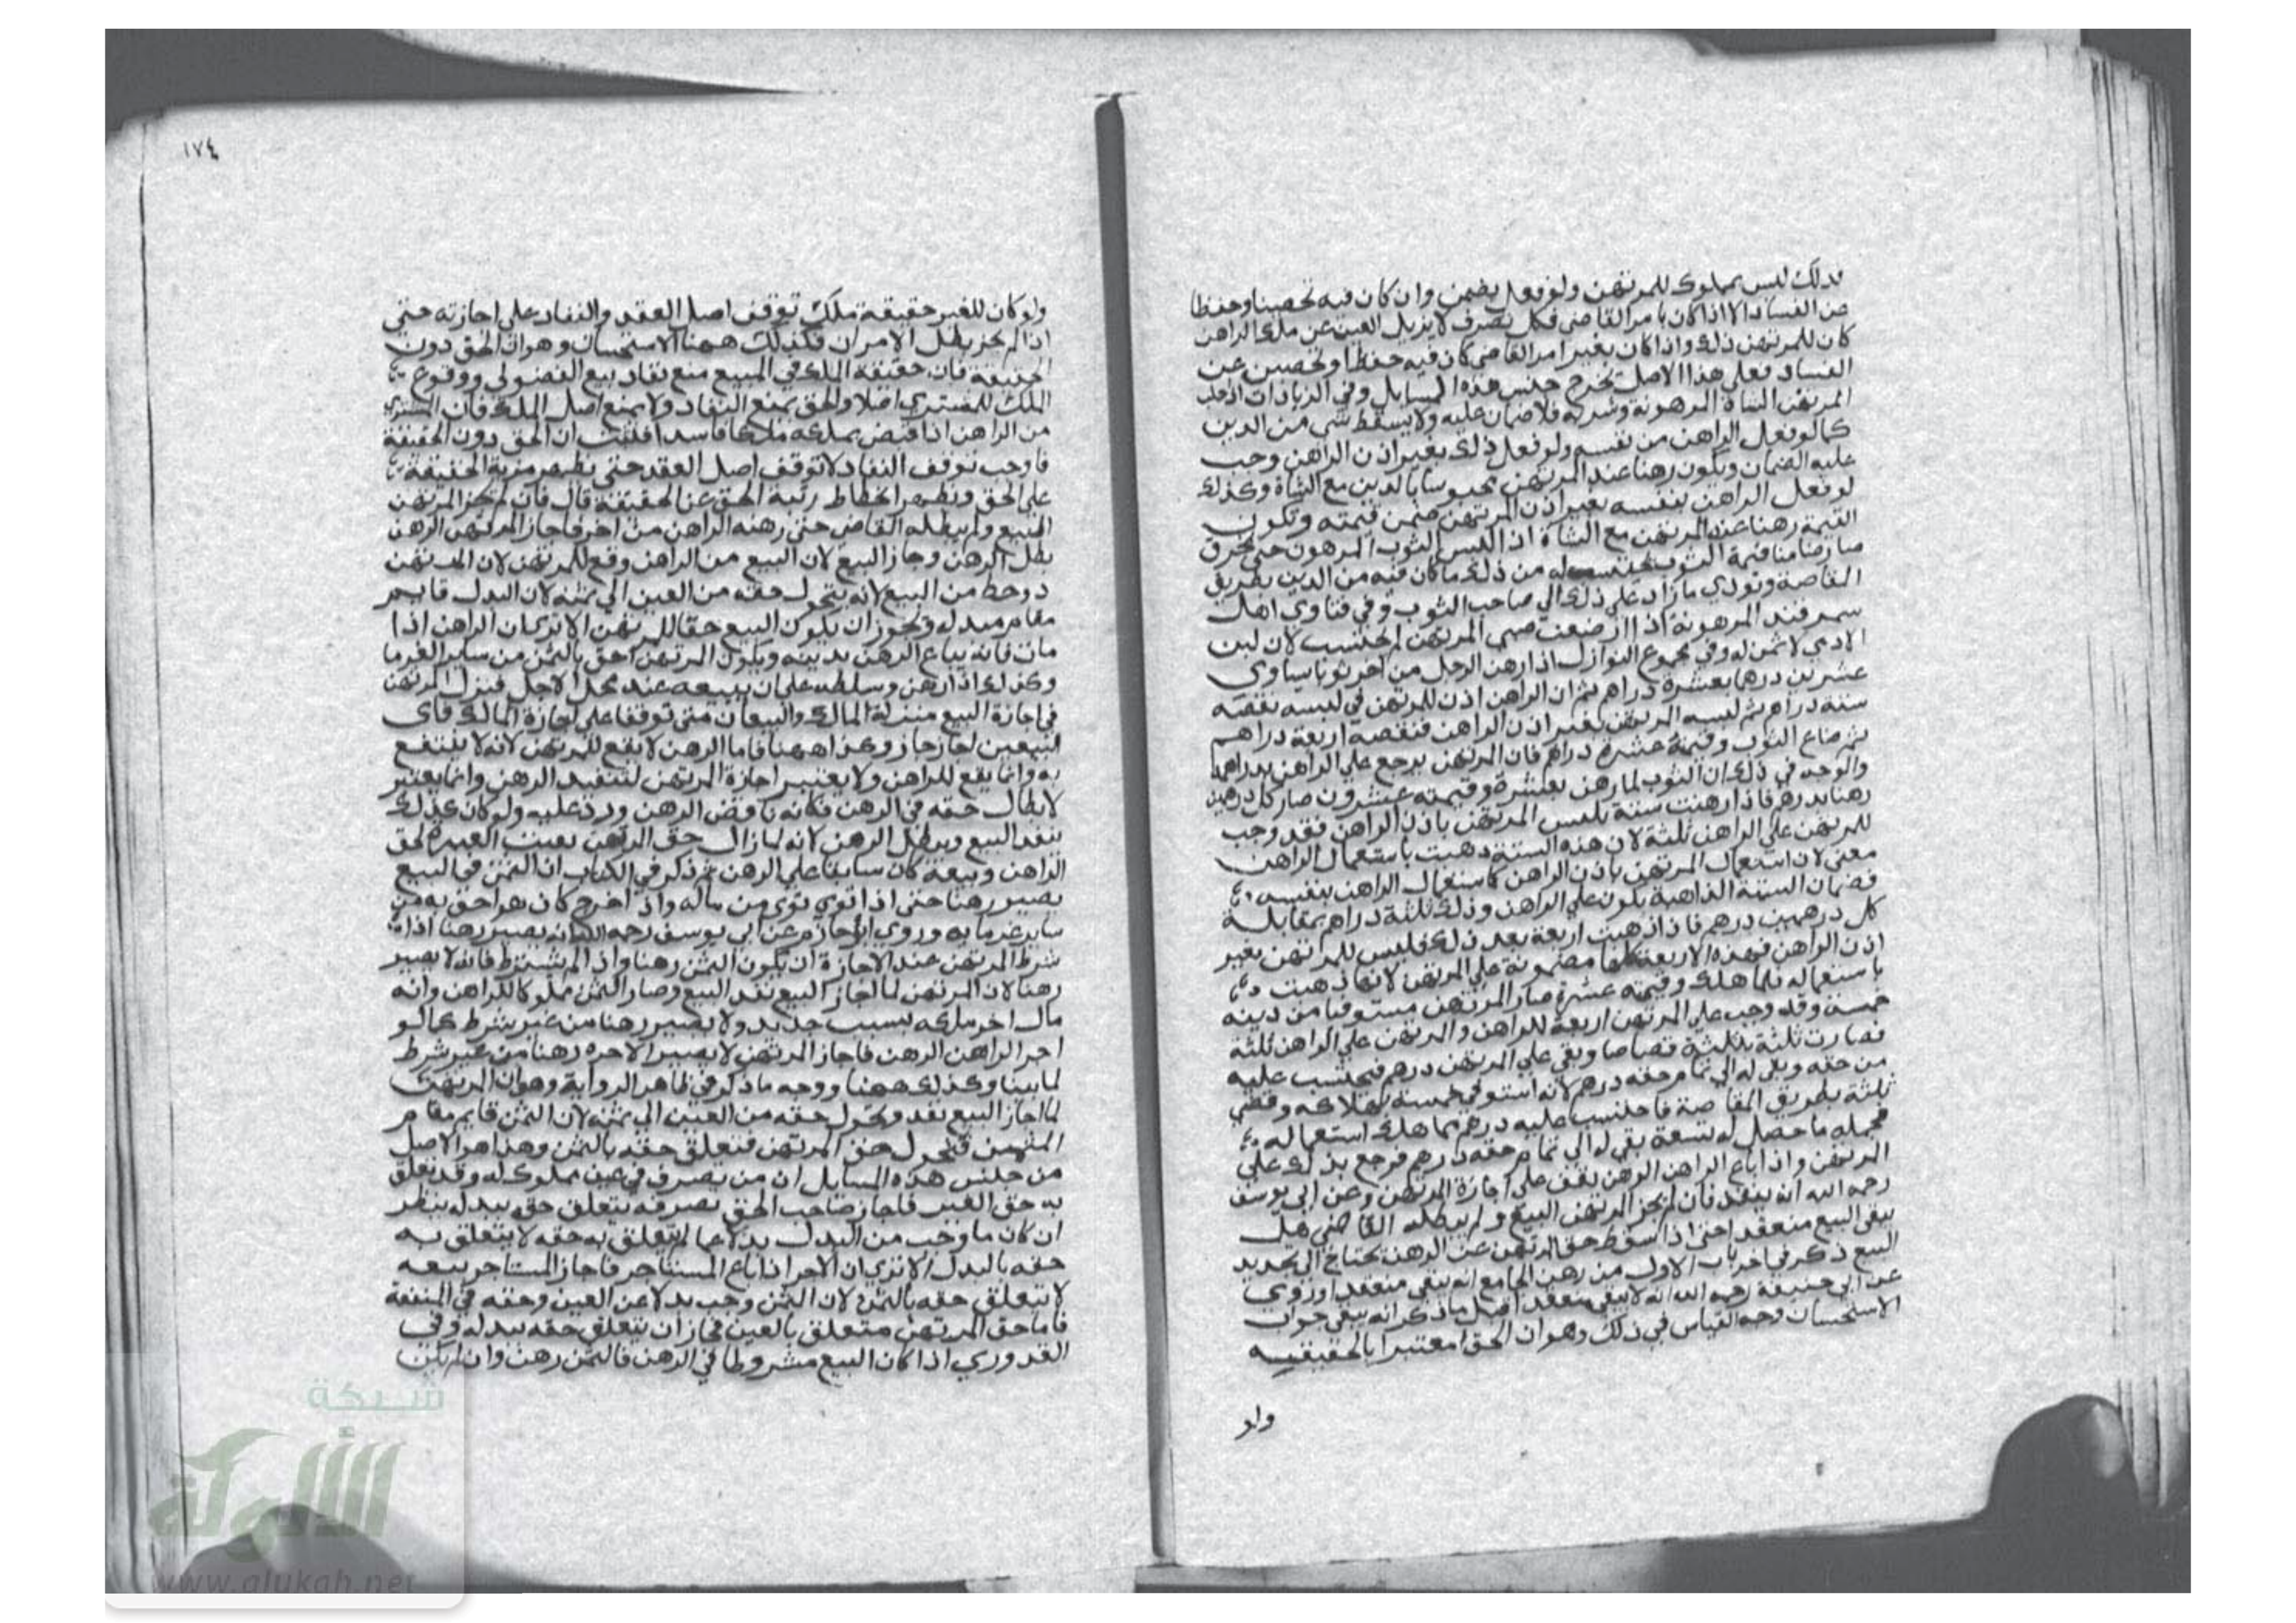 فذلك ليس بمملوك للمرتهن ولو فعل يضمن وان كان فيه تحصينا وحفظا
عن الفساد الا اذا كان بامر القاضي فكل تصرف لا يزيل العين عن ملك الراهن
كان للمرتهن ذلك واذا كان بغير امر القاضي كان فيه حفظا وتحصين عن
الفساد فعلي هذا الاصل تخرج جنس هذه المسايل وفي الزيادات اذا حلب
المرتهن الشاة المرهونة وشربه فلا ضمان عليه ولا يسقط شي من الدين
كما لو فعل الراهن من نفسه ولو فعل ذلك بغير اذن الراهن وجب
عليه الضمان ويكون رهنا عند المرتهن محبوسا بالدين مع الشاة وكذلك
لو فعل الراهن بنفسه بغير اذن المرتهن ضمن قيمته وتكون
القيمة رهنا عند المرتهن مع الشاة اذا لبس الثوب المرهون حتي تخرق
صار ضامنا قيمة الثوب له من ذلك ما كان فيه من الدين بطريق
القاصة وتودي ما زاد علي ذلك الي صاحب الثوب وفي فتاوي اهل
سمرقند المرهونة اذا ارضعت صبي المرتهن لم يحتسب لان لبن
الادمي لا ثمن له وفي مجموع النوازل اذا رهن الرجل من اخر ثوبا يساوي
عشرين درهما بعشرة دراهم ثم ان الراهن اذن للمرتهن في لبسه نقصه
ستة دراهم ثم لبسه المرتهن بغير اذن الراهن فنقصه اربعة دراهم
ثم ضاع الثوب وقيمته عشرة دراهم فان المرتهن يرجع علي الراهن بدرهم
والوجه في ذلك ان الثوب لما رهن بعشرة وقيمته عشرون صار كل درهمين
رهنا بدرهم فاذا ذهبت ستة بلبس المرتهن باذن الراهن فقد وجب
للمرتهن علي الراهن ثلثة لان هذه الستة ذهبت باستعمال الراهن
معني لان استعمال المرتهن باذن الراهن كاستعمال الراهن بنفسه
فضمان الستة الذاهبة يكون علي الراهن وذلك ثلثة دراهم بمقابلة
كل درهمين درهم فاذا ذهبت اربعة بعد ذلك فلبس للمرتهن بغير
اذن الراهن فهذه الاربعة كلها مضمونة علي المرتهن لانها ذهبت
باستعماله فلما هلك وقيمته عشرة صار المرتهن مستوفيا من دينه
خمسة وقد وجب علي المرتهن اربعة للراهن والمرتهن علي الراهن ثلثة
فصارت ثلثة بثلثة قصاصا وبقي علي المرتهن درهم فيحتسب عليه
من حقه وبقي له الي تمام حقه درهم لانه استوفي خمسة بهلاكه وقضي
ثلثة بطريق المقاصة فاحتسب عليه درهم مما هلك استعماله
فجمله ما حصل له تسعة بقي له الي تمام حقه درهم فرجع بذلك علي
المرتهن واذا باع الراهن الرهن يقف علي اجازة المرتهن وعن ابي يوسف
رحمه الله انه ينفذ فان لم يجز المرتهن البيع ولم يبطله القاضي هل
يبقي البيع منعقدا حتي اذا سقط حق المرتهن عن الرهن يحتاج الي تجديد
البيع ذكر في اخر باب الاول من رهن الجامع انه يبقي منعقدا وروي
عن ابي حنيفة رحمه الله انه لا يبقي منعقدا قيل ما ذكر انه يبقي جواب
الاستحسان وجه القياس في ذلك وهو ان الحق معتبرا بالحقيقيه
ولو
١٧٤
ولو كان للغير حقيقة ملك توقف اصل العقد والنفاذ علي اجازته حتي
اذا لم يجز بطل الامران فكذلك ههنا الاستحسان وهو ان الحق دون
الحقيقة فان حقيقة الملك في المبيع منع نفاذ بيع الفضولي ووقوع
الملك للمشتري اصلا والحق يمنع النفاذ ولا يمنع اصل الملك فان المشتري
من الراهن اذا قبض يملكه ملكا فاسدا فلثبت ان الحق دون الحقيقة
فاوجب توقف النفاذ لا توقف اصل العقد حتي يظهر مزية الحقيقة
علي الحق ويظهر انحطاط رتبة الحق عن الحقيقة قال فان لم يجز المرتهن
البيع ولم يبطله القاضي حتي رهنه الراهن من اخر فاجاز المرتهن الرهن
بطل الرهن وجاز البيع لان البيع من الراهن وقع للمرتهن لان المرتهن
ذو حظ من البيع لانه يتحول حقه من العين الي ثمنه لان البدل قايم
مقام مبدله فيجوز ان يكون البيع حقا للمرتهن الا تري ان الراهن اذا
مات فانه يباع الرهن بدينه ويكون المرتهن احق بالثمن من ساير الغرما
وكذلك اذا رهن وسلطه علي ان يبيعه عند محل الاجل فنزل المرتهن
في اجازة البيع منزلة المالك والبيعان متي توقفا علي اجازة المالك فاي
البيعين اجاز جاز وكذا ههنا فاما الرهن لا يقع للمرتهن لانه لا ينتفع
به وانما يقع للراهن ولا يعتبر اجازة المرتهن لتنفيذ الرهن وانما يعتبر
لابطال حقه في الرهن فكانه ناقض الرهن ورد عليه ولو كان كذلك
ينفذ البيع ويبطل الرهن لانه لما زال حق المرتهن بقيت العبرة لحق
الراهن وبيعه كان سابقا علي الرهن ثم ذكر في الكتاب ان الثمن في البيع
يصير رهنا حتي اذا توي توي من ماله واذا خرج كان هو احق به من
ساير غرمايه وروي ابو حازم عن ابي يوسف رحمه الله انه يصير رهنا اذا
شرط المرتهن عند الاجازة ان يكون الثمن رهنا واذا لم يشترط فانه لا يصير
رهنا لان المرتهن لما اجاز البيع نفذ البيع وصار الثمن مملوكا للراهن وانه
مال اخر ملكه بسبب جديد ولا يصير رهنا من غير شرط كما لو
اجر الراهن الرهن فاجاز المرتهن لا يصير الاجره رهنا من غير شرط
لما بينا وكذلك ههنا ووجه ما ذكر في ظاهر الرواية وهو ان المرتهن
لما اجاز البيع نفذ وتحول حقه من العين الي ثمنه لان الثمن قايم مقام
المثمن فيتحول حق المرتهن فتعلق حقه بالثمن وهذا هو الاصل
من جنس هذه المسايل ان من يصرف في عين مملوك له وقد تعلق
به حق الغير فاجاز صاحب الحق تصرفه يتعلق حقه ببدله ينظر
ان كان ما وجب من البدل بدلا عما لم يتعلق به حقه لا يتعلق به
حقه بالبدل الا تري ان الاجر اذا باع المستاجر فاجاز المستاجر بيعه
لا يتعلق حقه بالثمن لان الثمن وجب بدلا عن العين وحقه في المنفعة
فاما حق المرتهن متعلق بالعين فجاز ان يتعلق حقه ببدله وفي
القدوري اذا كان البيع مشروطا في الرهن فالثمن رهن وان لم يكن
شبكة
الألوكة
www.alukah.net